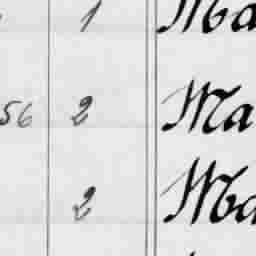 1 Ma
56 2 Ma
2 Ma